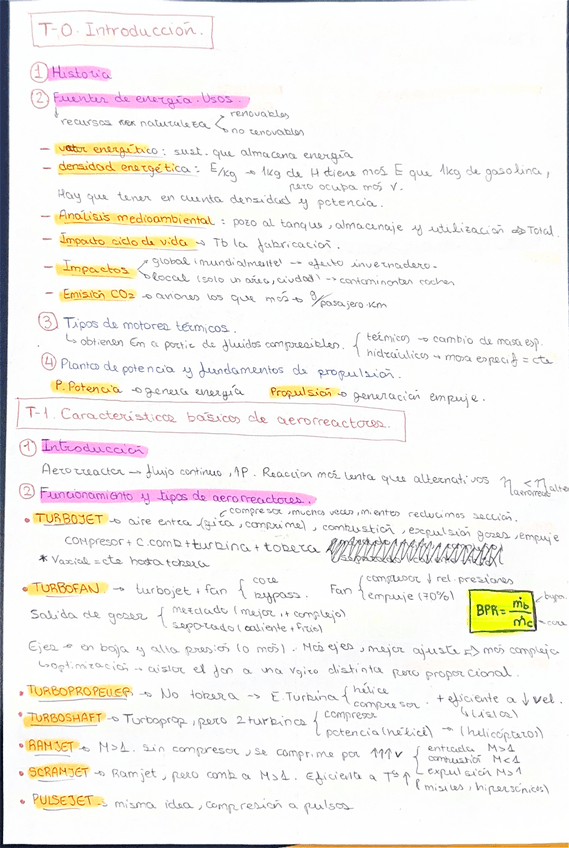 T-0. Introducción.
① Historia
② Fuentes de energía. Usos.
↓ recursos naturaleza < renovables
no renovables
- vector energético: sust. que almacena energía
- densidad energética: E/kg → 1kg de H tiene más E que 1kg de gasolina,
pero ocupa más V.
Hay que tener en cuenta densidad y potencia.
- Análisis medioambiental: pozo al tanque, almacenaje y utilización ⇒ Total.
- Impacto ciclo de vida → Tb la fabricación.
- Impactos < global (mundialmente) → efecto invernadero.
local (solo un área, ciudad) → contaminantes coches
- Emisión CO2 → aviones los que más → g/pasajero·km
③ Tipos de motores térmicos.
↳ obtienen Em a partir de fluidos compresibles. { térmicos → cambio de masa esp.
hidráulicos → masa especif = cte
④ Plantas de potencia y fundamentos de propulsión.
P. Potencia → genera energía Propulsión → generación empuje.
T-1. Características básicas de aerorreactores.
① Introducción
Aerorreactor → flujo continuo, ↑P. Reacción más lenta que alternativos η aerorreact < η alter
② Funcionamiento y tipos de aerorreactores.
compresor, muchas veces, mientras reducimos sección.
• TURBOJET → aire entra (gira, comprime), combustión, expulsión gases, empuje
compresor + c.comb + turbina + tobera
* Vaxial = cte hasta tobera
• TURBOFAN → turbojet + fan { core
bypass. Fan { compresor ↓ rel. presiones
empuje (70%)
Salida de gases { mezclado (mejor, + complejo)
separado (caliente + frío)
BPR = ṁb / ṁc
bypass
core
Ejes → en baja y alta presión (o más). Más ejes, mejor ajuste ⇒ más complejo
↳ optimización → aislar el fan a una vgiro distinta pero proporcional.
• TURBOPROPELLER → No tobera → E. Turbina { hélice
compresor. + eficiente a ↓ vel.
• TURBOSHAFT → Turboprop, pero 2 turbinas { compresor
potencia (hélice) → (helicóptero)
↳ (islas)
• RAMJET → M>1. Sin compresor, se comprime por ↑↑↑ v { entrada M>1
combustión M<1
expulsión M>1
• SCRAMJET → Ramjet, pero comb a M>1. Eficiencia a Tª ↑ (misiles, hipersónicos)
• PULSEJET → misma idea, compresión a pulsos